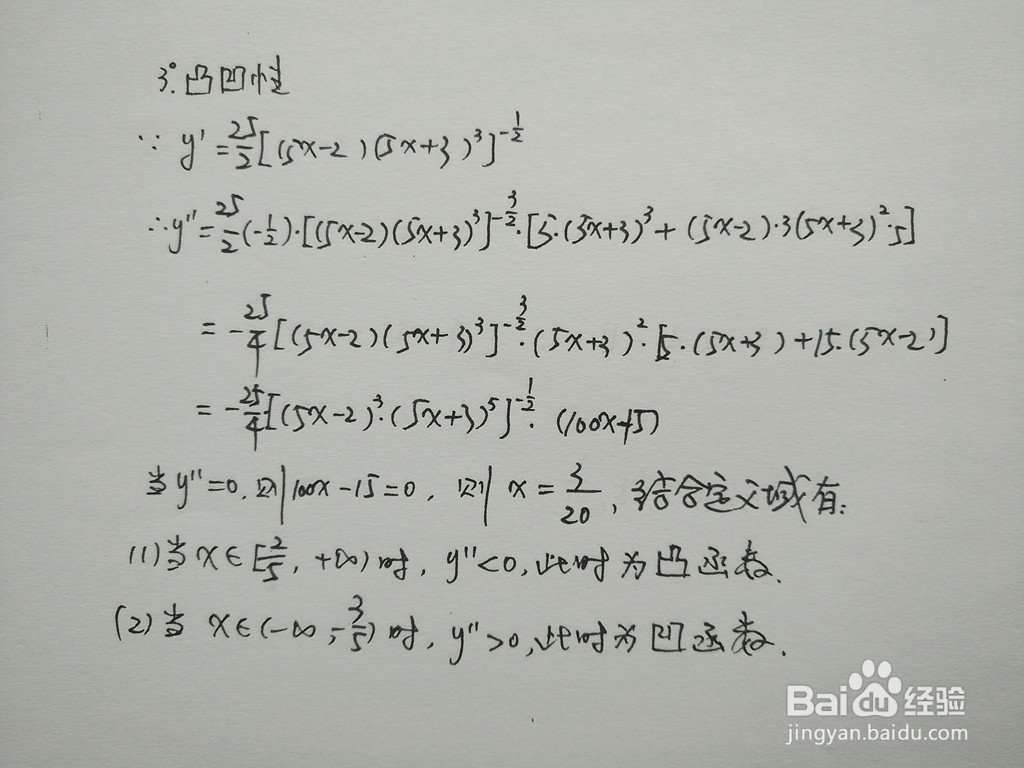 3°.凸凹性
∵ y'=25/2[(5x-2)(5x+3)³]^(-1/2)
∴y''=25/2(-1/2)·[(5x-2)(5x+3)³]^(-3/2)·[5·(5x+3)³+(5x-2)·3(5x+3)²·5]
=-25/4[(5x-2)(5x+3)³]^(-3/2)·(5x+3)²·[5·(5x+3)+15·(5x-2)]
=-25/4[(5x-2)³·(5x+3)⁵]^(-1/2)·(100x-15)
当y''=0,则100x-15=0,则x=3/20,结合定义域有:
(1)当x∈[2/5,+∞)时,y''<0,此时为凸函数.
(2)当x∈(-∞,-3/5)时,y''>0,此时为凹函数.
Baidu经验
jingyan.baidu.com